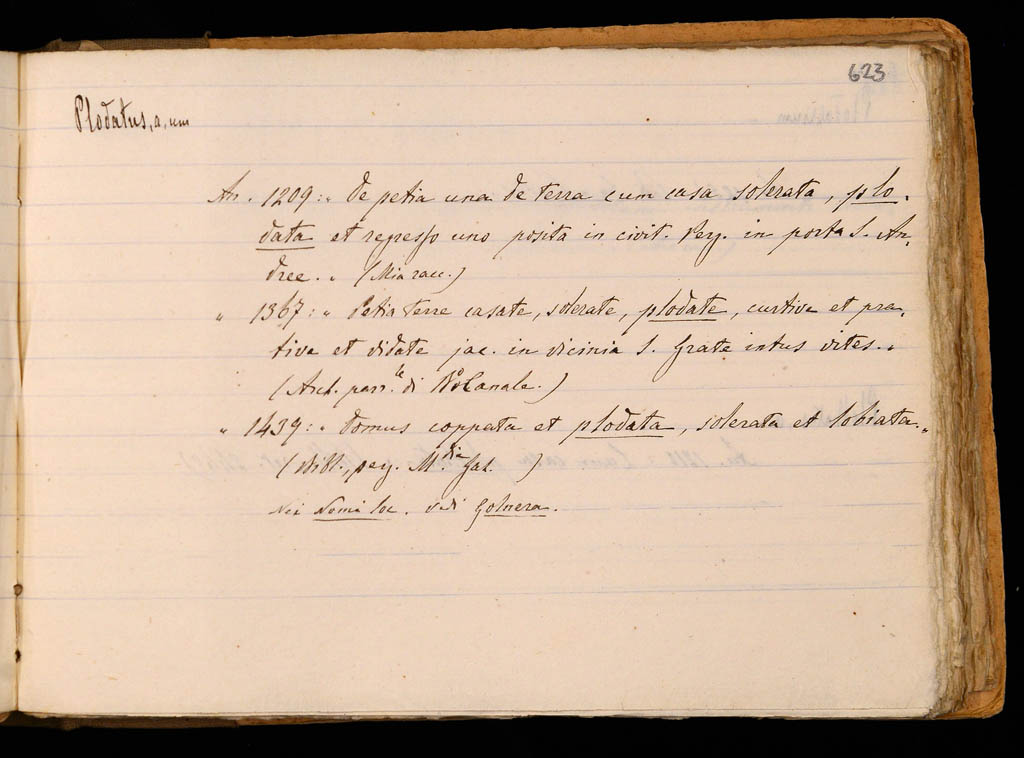 623
Plodatus, a, um
An. 1209: „ De petia una de terra cum casa solerata, plo-
data et represso uno posita in civit. Perg. in porta S. An-
dree. „ (Mia racc.)
„ 1367: „ Petia terre casate, solerate, plodate, curtive et pra-
tive et vidate jac. in vicinia S. Grate intus vites. „
(Arch. parr.le di Canale.)
„ 1439: „ Domus coppata et plodata, solerata et lobiata. „
(Bibl., perg. M.dia Gal. )
Nei Nomi loc. vedi Golnera.